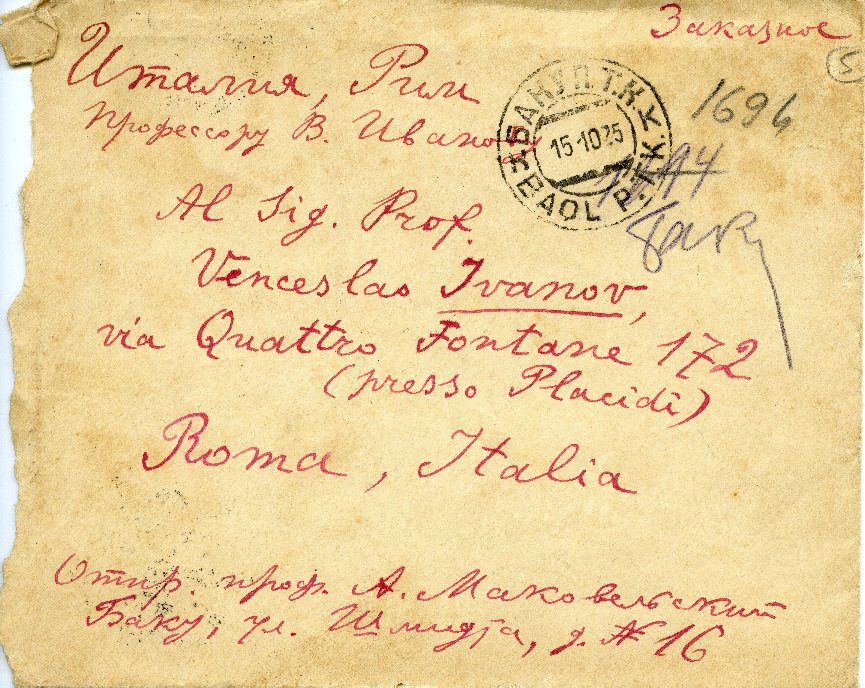 Заказное
5
Италия, Рим
профессору В. Иванову
БАКУ П.Т.К.
15 10 25
1694
Баку
Al Sig. Prof.
Venceslao Ivanov,
via Quattro Fontane 172
(presso Placidi)
Roma, Italia
Отпр. проф. А. Маковельский
Баку, ул. Шмидта, д. № 16